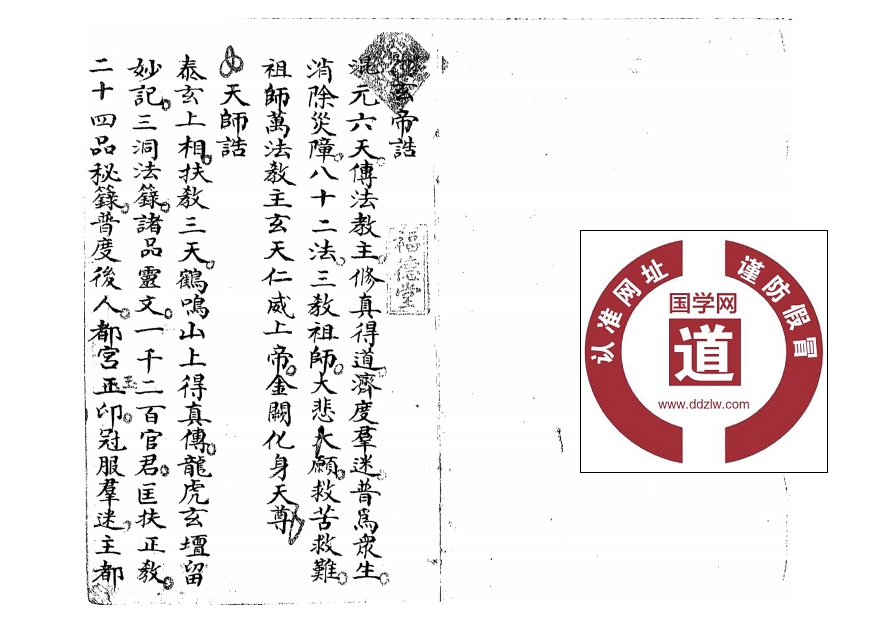 玄帝誥
福德堂
混元六天。傳法教主。修真得道。濟度羣迷。普爲衆生。
消除災障。八十二法。三教祖師。大悲大願。救苦救難。
祖師萬法教主玄天仁威上帝。金闕化身天尊
天師誥
泰玄上相。扶教三天。鶴鳴山上得真傳。龍虎玄壇留
妙記。三洞法籙。諸品靈文。一千二百官君。匡扶正教。
二十四品秘籙。普度後人。都宮玉印。冠服羣迷。主都
认准网址
谨防假冒
国学网
道
www.ddzlw.com